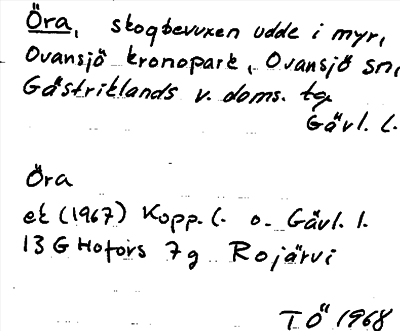 Öra, skogbevuxen udde i myr,
Ovansjö kronopark, Ovansjö sn,
Gästriklands v. doms. tg.
Gävl. l.
Öra
ek (1967) Kopp. l. o. Gävl. l.
13 G Hofors 7g Rojärvi
TÖ 1968